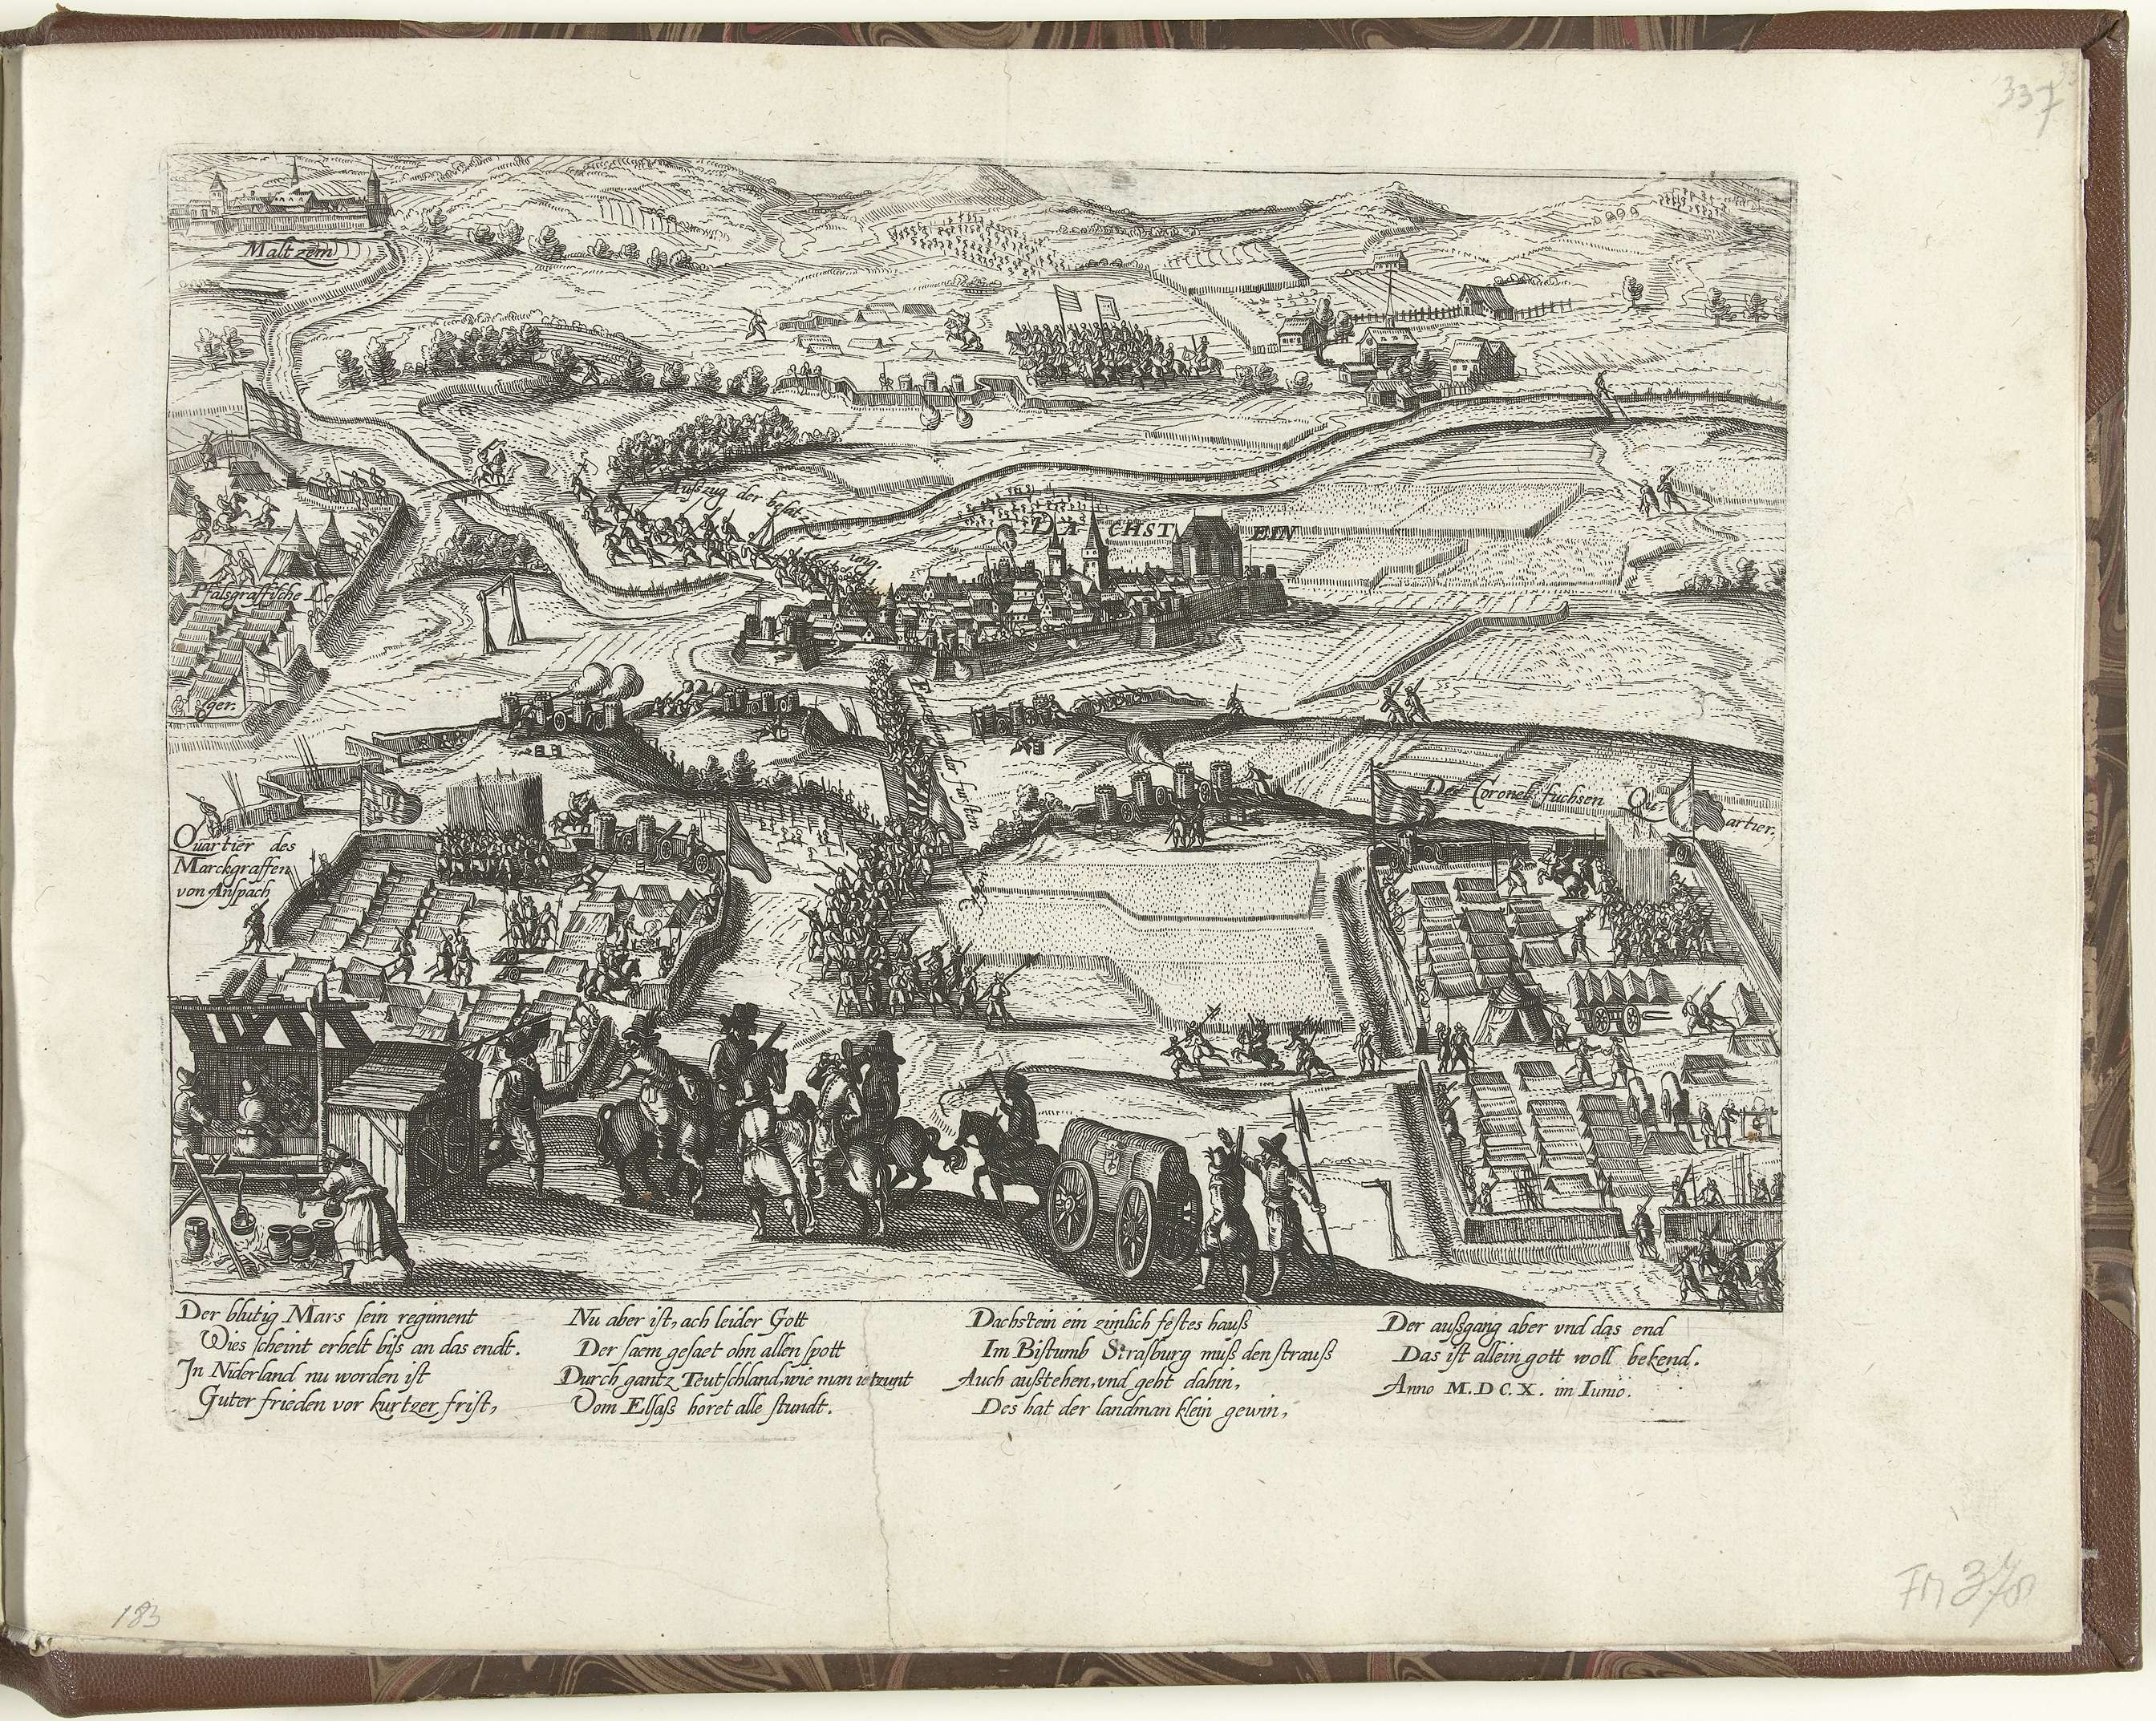 337
Maltzem
Außzug der besat-
zung.
DACHSTEIN
Pfalsgraffische Le
ger.
Einzug der fursten
Quartier des
Marckgraffen
von Anspach
Des Coronels fuchsen Qu
artier.
Der blutig Mars sein regiment
Wies scheint erhelt biss an das endt.
In Niderland nu worden ist
Guter frieden vor kurtzer frist,
Nu aber ist, ach leider Gott
Der saem gesaet ohn allen spott
Durch gantz Teutschland, wie man ietzunt
Vom Elsaß horet alle stundt.
Dachstein ein zimlich festes hauß
Im Bistumb Strasburg muß den strauß
Auch außstehen, und geht dahin,
Des hat der landman klein gewin,
Der außgang aber vnd das end
Das ist allein gott woll bekend.
Anno M.D C.X. im Iunio.
183
FM 378